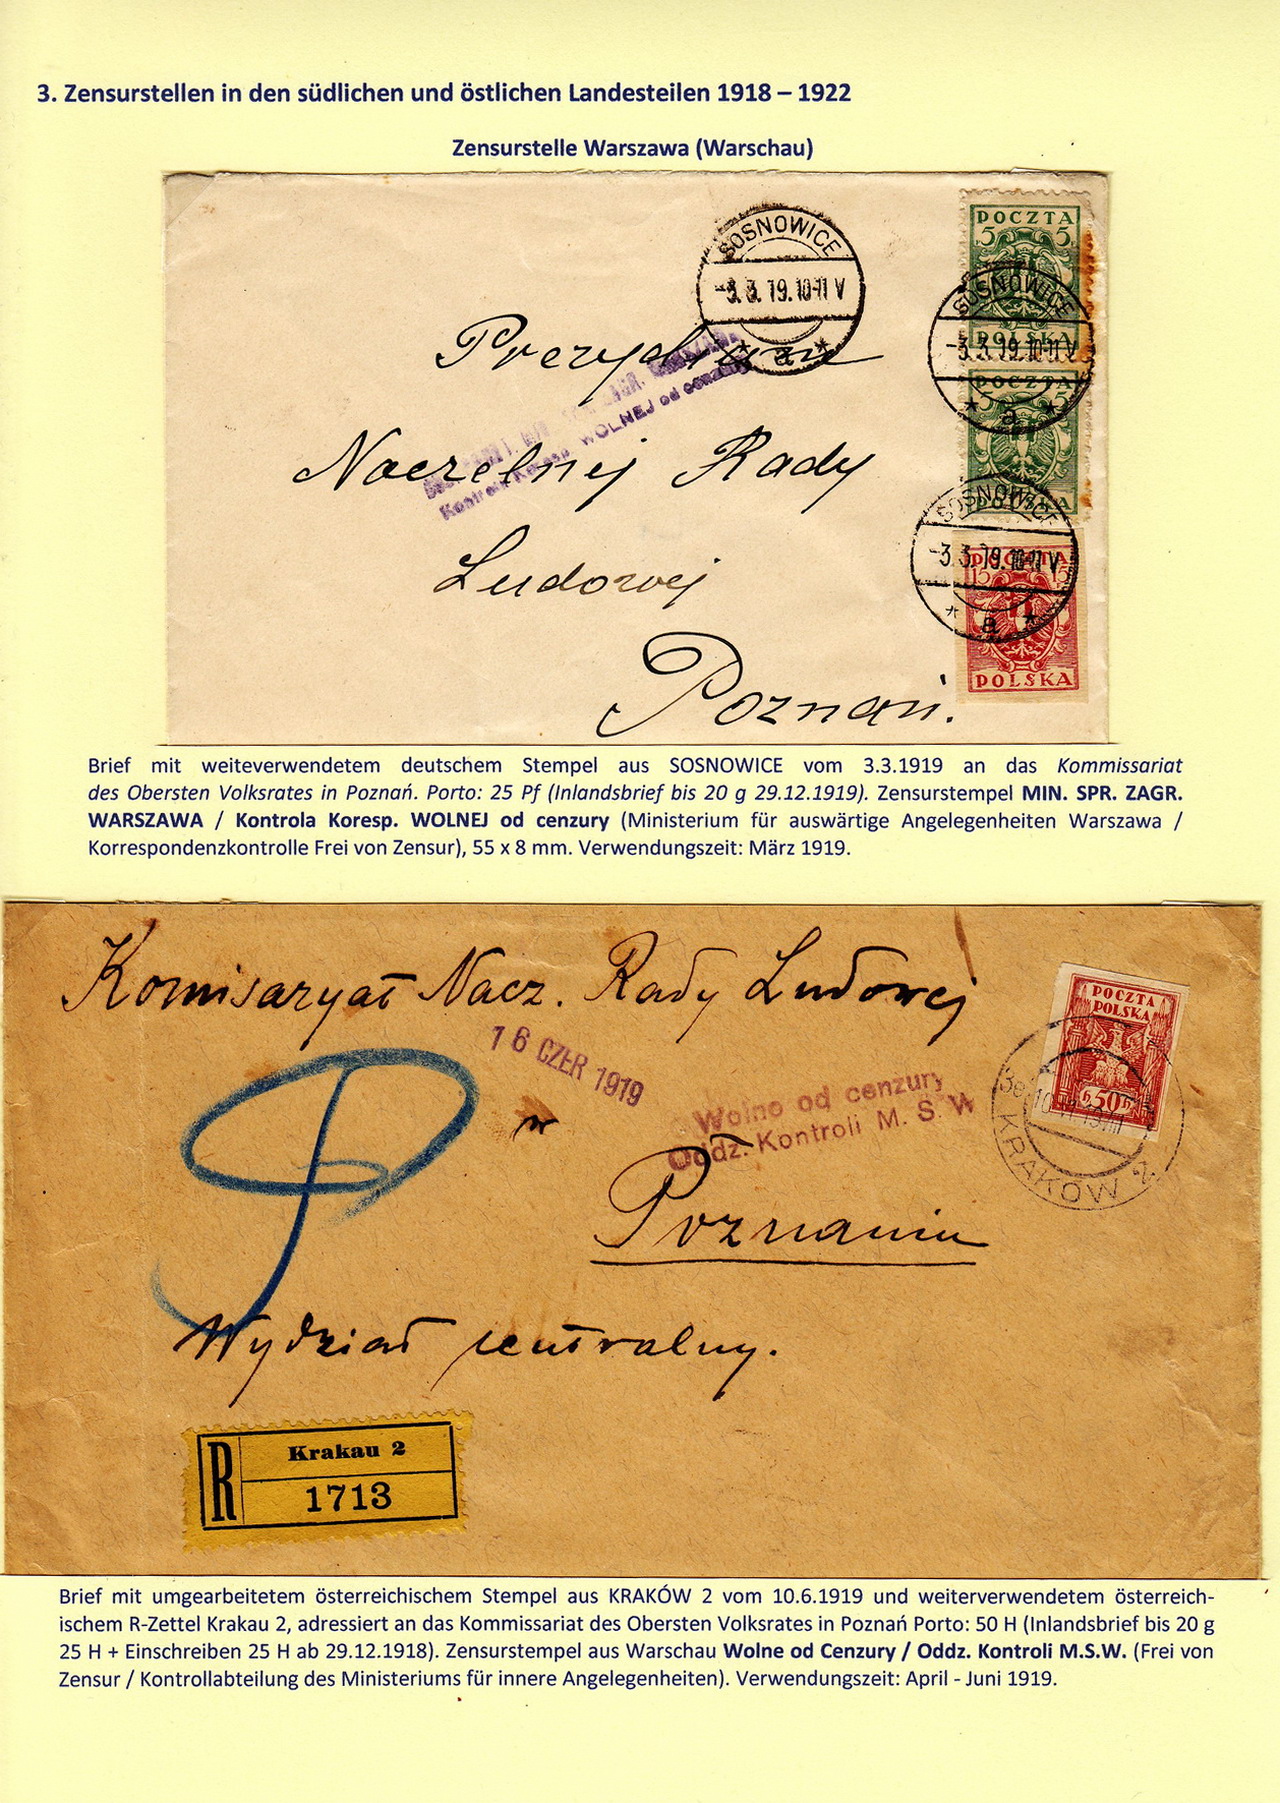 3. Zensurstellen in den südlichen und östlichen Landesteilen 1918 – 1922
Zensurstelle Warszawa (Warschau)
SOSNOWICE
-3.3.19.10-11 V
* a *
POCZTA
5 5
POLSKA
SOSNOWICE
-3.3.19.10-11 V
* a *
POCZTA
5 5
Prezydium
ZAGR. WARSZAWA
Kontrola Koresp. WOLNEJ od cenzury
Naczelnej Rady
SOSNOWICE
-3.3.19.10-11 V
* a *
POCZTA
15 15
POLSKA
Ludowej
Poznań.
Brief mit weiteverwendetem deutschem Stempel aus SOSNOWICE vom 3.3.1919 an das Kommissariat
des Obersten Volksrates in Poznań. Porto: 25 Pf (Inlandsbrief bis 20 g 29.12.1919). Zensurstempel MIN. SPR. ZAGR.
WARSZAWA / Kontrola Koresp. WOLNEJ od cenzury (Ministerium für auswärtige Angelegenheiten Warszawa /
Korrespondenzkontrolle Frei von Zensur), 55 x 8 mm. Verwendungszeit: März 1919.
Komisaryat Nacz. Rady Ludowej
POCZTA
POLSKA
50
KRAKÓW 2
16 CZER 1919
Wolne od cenzury
Oddz. Kontroli M. S. W
w
Poznaniu
Wydział centralny.
R
Krakau 2
1713
Brief mit umgearbeitetem österreichischem Stempel aus KRAKÓW 2 vom 10.6.1919 und weiterverwendetem österreich-
ischem R-Zettel Krakau 2, adressiert an das Kommissariat des Obersten Volksrates in Poznań Porto: 50 H (Inlandsbrief bis 20 g
25 H + Einschreiben 25 H ab 29.12.1918). Zensurstempel aus Warschau Wolne od Cenzury / Oddz. Kontroli M.S.W. (Frei von
Zensur / Kontrollabteilung des Ministeriums für innere Angelegenheiten). Verwendungszeit: April - Juni 1919.